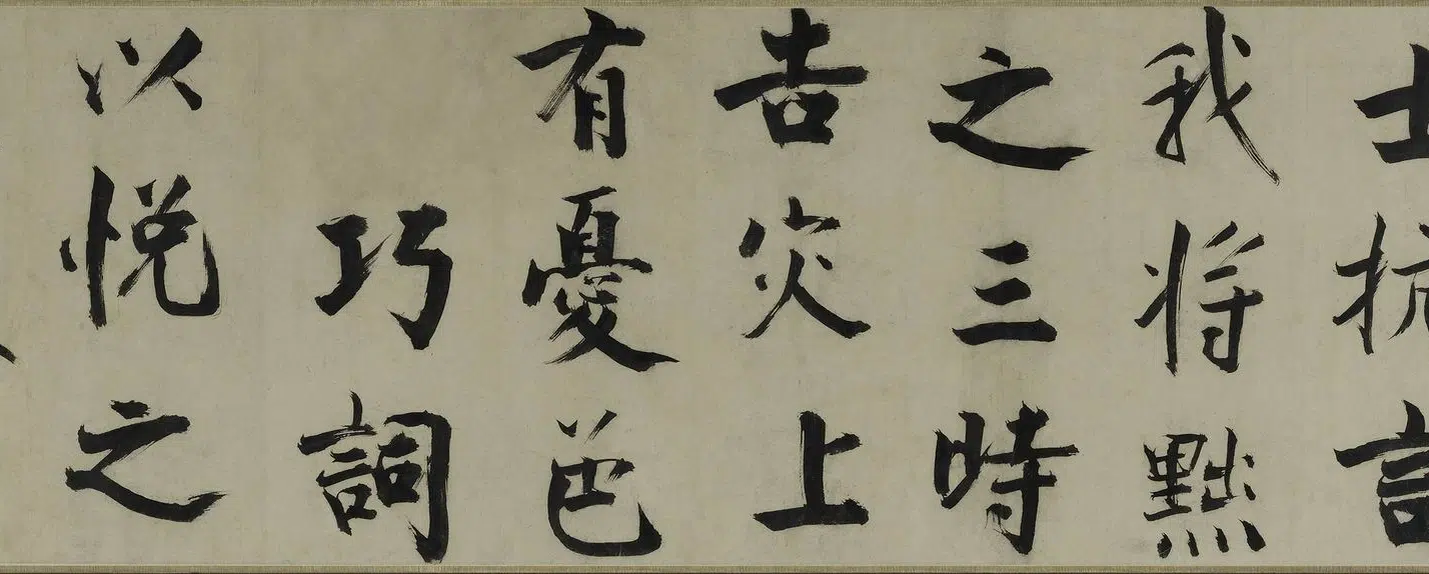 士抗言
我将黜
之三時
告灾上
有憂色
巧詞
以悦之